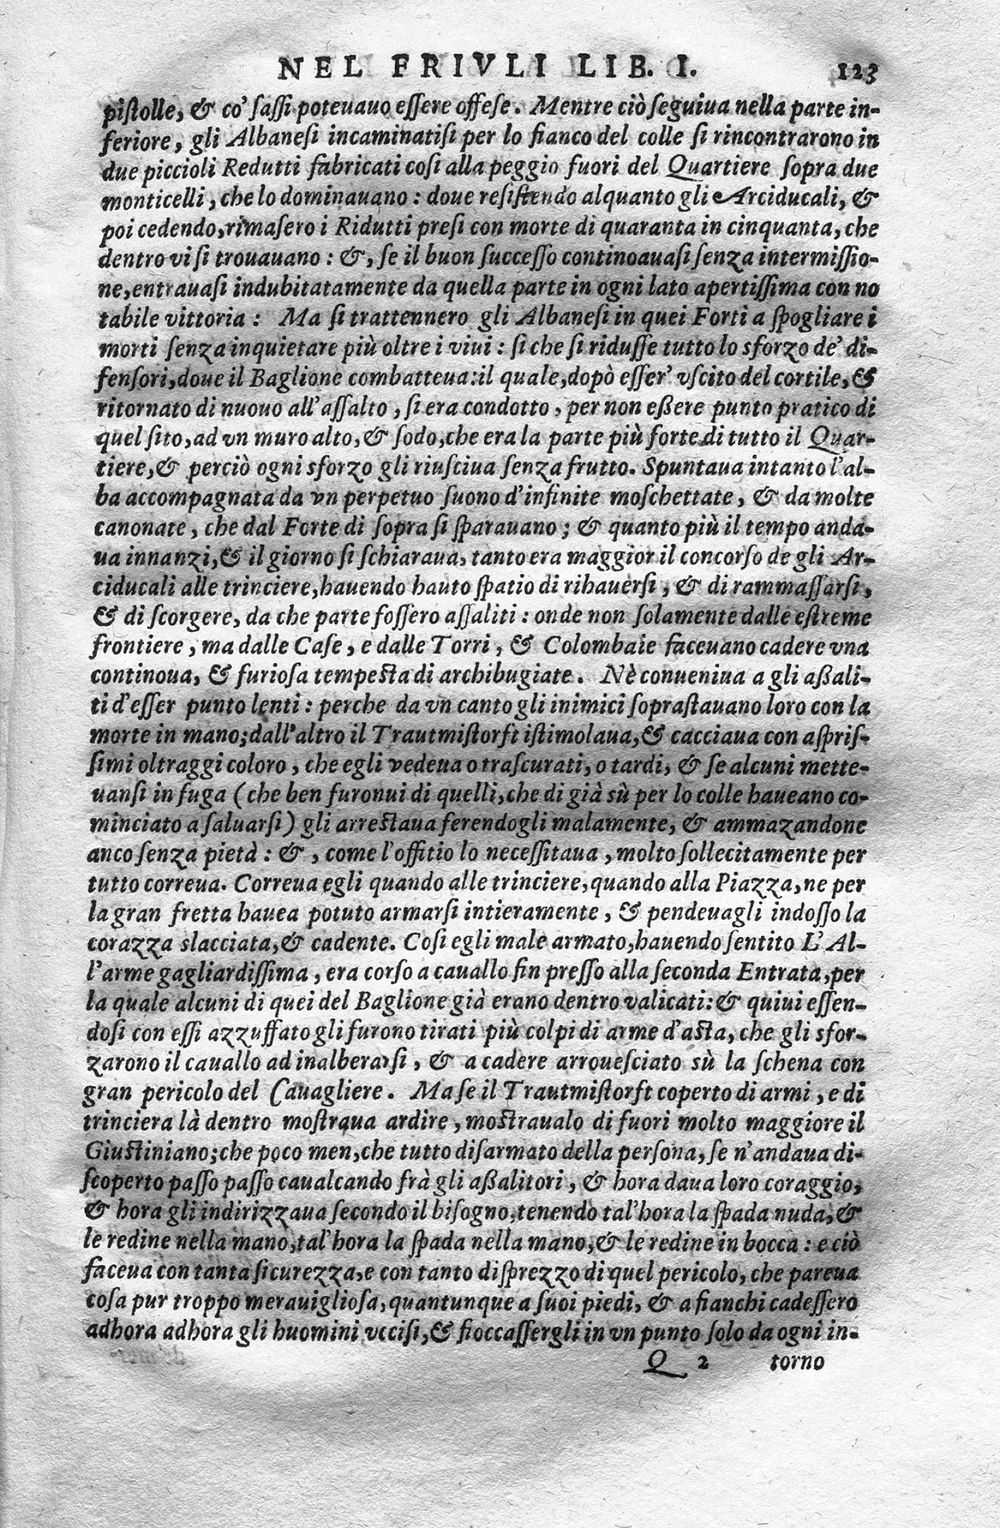 NEL FRIVLI LIB. I. 123
pistolle, & co' sassi poteuauo essere offese. Mentre ciò seguiua nella parte in-
feriore, gli Albanesi incaminatisi per lo fianco del colle si rincontrarono in
due piccioli Redutti fabricati cosi alla peggio fuori del Quartiere sopra due
monticelli, che lo dominauano: doue resistendo alquanto gli Arciducali, &
poi cedendo, rimasero i Ridutti presi con morte di quaranta in cinquanta, che
dentro vi si trouauano: &, se il buon successo continoauasi senza intermissio-
ne, entrauasi indubitatamente da quella parte in ogni lato apertissima con no
tabile vittoria: Ma si trattennero gli Albanesi in quei Forti a spogliare i
morti senza inquietare più oltre i viui: si che si ridusse tutto lo sforzo de' di-
fensori, doue il Baglione combatteua: il quale, dopò esser' vscito del cortile, &
ritornato di nuouo all'assalto, si era condotto, per non eßere punto pratico di
quel sito, ad vn muro alto, & sodo, che era la parte più forte di tutto il Quar-
tiere, & perciò ogni sforzo gli riusciua senza frutto. Spuntaua intanto l'al-
ba accompagnata da vn perpetuo suono d'infinite moschettate, & da molte
canonate, che dal Forte di sopra si sparauano; & quanto più il tempo anda-
ua innanzi, & il giorno si schiaraua, tanto era maggior il concorso de gli Ar-
ciducali alle trinciere, hauendo hauto spatio di rihauersi, & di rammassarsi,
& di scorgere, da che parte fossero assaliti: onde non solamente dalle estreme
frontiere, ma dalle Case, e dalle Torri, & Colombaie faceuano cadere vna
continoua, & furiosa tempesta di archibugiate. Nè conueniua a gli aßali-
ti d'esser punto lenti: perche da vn canto gli inimici soprastauano loro con la
morte in mano; dall'altro il Trautmistorft istimolaua, & cacciaua con aspris-
simi oltraggi coloro, che egli vedeua o trascurati, o tardi, & se alcuni mette-
uansi in fuga (che ben furonui di quelli, che di già sù per lo colle haueano co-
minciato a saluarsi) gli arrestaua ferendogli malamente, & ammazandone
anco senza pietà: &, come l'offitio lo necessitaua, molto sollecitamente per
tutto correua. Correua egli quando alle trinciere, quando alla Piazza, ne per
la gran fretta hauea potuto armarsi intieramente, & pendeuagli indosso la
corazza slacciata, & cadente. Cosi egli male armato, hauendo sentito L'Al-
l'arme gagliardissima, era corso a cauallo fin presso alla seconda Entrata, per
la quale alcuni di quei del Baglione già erano dentro valicati: & quiui essen-
dosi con essi azzuffato gli furono tirati più colpi di arme d'asta, che gli sfor-
zarono il cauallo ad inalberarsi, & a cadere arrouesciato sù la schena con
gran pericolo del Cauagliere. Ma se il Trautmistorft coperto di armi, e di
trinciera là dentro mostraua ardire, mostraualo di fuori molto maggiore il
Giustiniano; che poco men, che tutto disarmato della persona, se n'andaua di-
scoperto passo passo caualcando frà gli aßalitori, & hora daua loro coraggio,
& hora gli indirizzaua secondo il bisogno, tenendo tal'hora la spada nuda, &
le redine nella mano, tal'hora la spada nella mano, & le redine in bocca: e ciò
faceua con tanta sicurezza, e con tanto disprezzo di quel pericolo, che pareua
cosa pur troppo merauigliosa, quantunque a suoi piedi, & a fianchi cadessero
adhora adhora gli huomini vccisi, & fioccassergli in vn punto solo da ogni in-
Q 2 torno